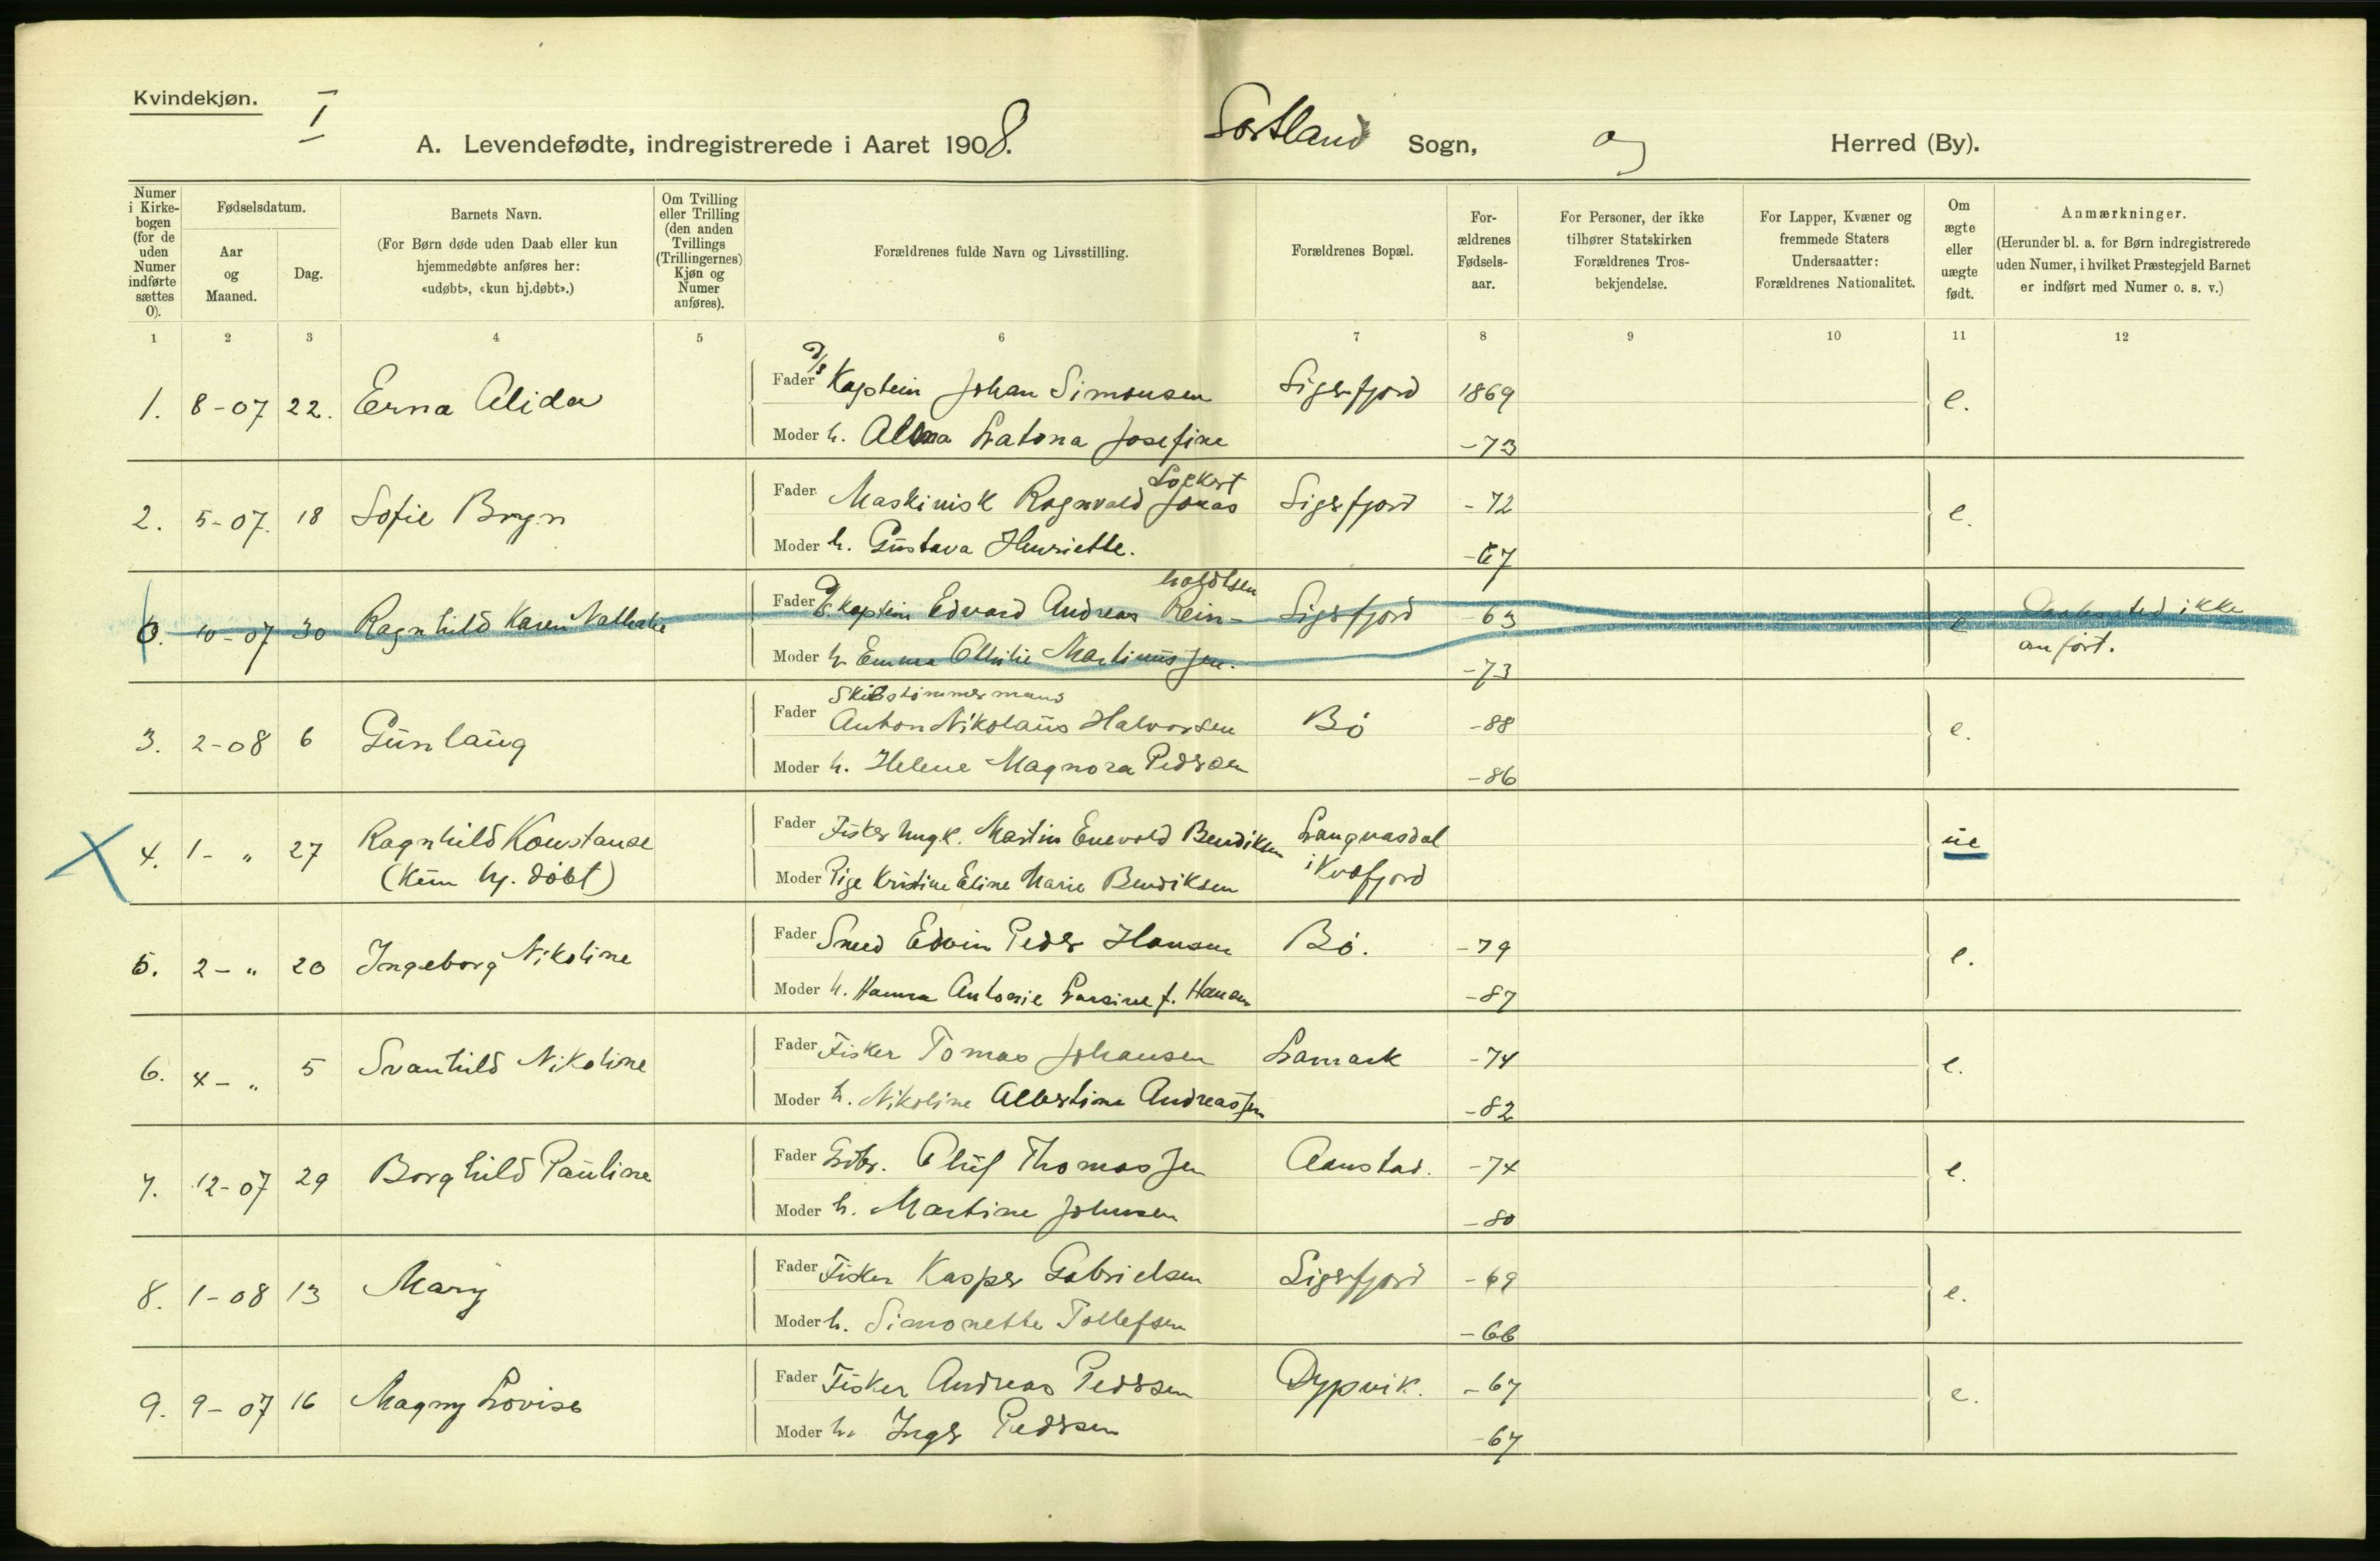 Kvindekjøn.
I
A. Levendefødte, indregistrerede i Aaret 1908.
Sortland Sogn, og Herred (By).
Numer i Kirkebogen (for de uden Numer indførte sættes 0).
Fødselsdatum.
Aar og Maaned.
Dag.
Barnets Navn.
(For Børn døde uden Daab eller kun hjemmedøbte anføres her: «udøbt», «kun hj.døbt».)
Om Tvilling eller Trilling (den anden Tvillings (Trillingernes) Kjøn og Numer anføres).
Forældrenes fulde Navn og Livsstilling.
Forældrenes Bopæl.
Forældrenes Fødselsaar.
For Personer, der ikke tilhører Statskirken Forældrenes Trosbekjendelse.
For Lapper, Kvæner og fremmede Staters Undersaatter: Forældrenes Nationalitet.
Om ægte eller uægte født.
Anmærkninger.
(Herunder bl. a. for Børn indregistrerede uden Numer, i hvilket Præstegjeld Barnet er indført med Numer o. s. v.)
1 2 3 4 5 6 7 8 9 10 11 12
1. 8-07 22. Erna Alida Fader D/s Kaptein Johan Simonsen Sigerfjord 1869 e.
Moder h. Alma Latona Josefine -73
2. 5-07. 18 Sofie Bryn Fader Maskinist Ragnvald Jonas Lockert Sigerfjord -72 e.
Moder h. Gustava Henriette. -67
0. 10-07 30 Ragnhild Karen Nathalie Fader D/s Kaptein Edvard Andreas Reinholdtsen Sigerfjord -63 e Daabssted ikke
Moder h. Emma Othilie Martinussen. -73 anført.
3. 2-08 6 Gunlaug Fader Skibstømmermand
Anton Nikolaus Halvorsen Bø -88 e.
Moder h. Helene Magnora Pedersen -86
4. 1- " 27 Ragnhild Konstanse Fader Fisker Ungk. Martin Enevold Bendiksen Langvasdal ue
(Kun hj. døbt) Moder Pige Kristine Eline Marie Bendiksen i Kvæfjord
5. 2- " 20 Ingeborg Nikoline Fader Smed Edvin Peder Hansen Bø. -79 e.
Moder h. Hanna Antonie Larsine f. Hansen -87
6. 4- " 5 Svanhild Nikoline Fader Fisker Tomas Johansen Lamark -74 e.
Moder h. Nikoline Albertine Andreassen -82
7. 12-07 29 Borghild Pauline Fader Gdbr. Oluf Thomassen Aanstad. -74 e.
Moder h. Martine Johnsen -80
8. 1-08 13 Mary Fader Fisker Kasper Gabrielsen Sigerfjord -69 e.
Moder h. Simonette Tollefsen -66
9. 9-07 16 Magny Lovise Fader Fisker Andreas Pedersen Dypvik. -67 e.
Moder h. Inger Pedersen -67